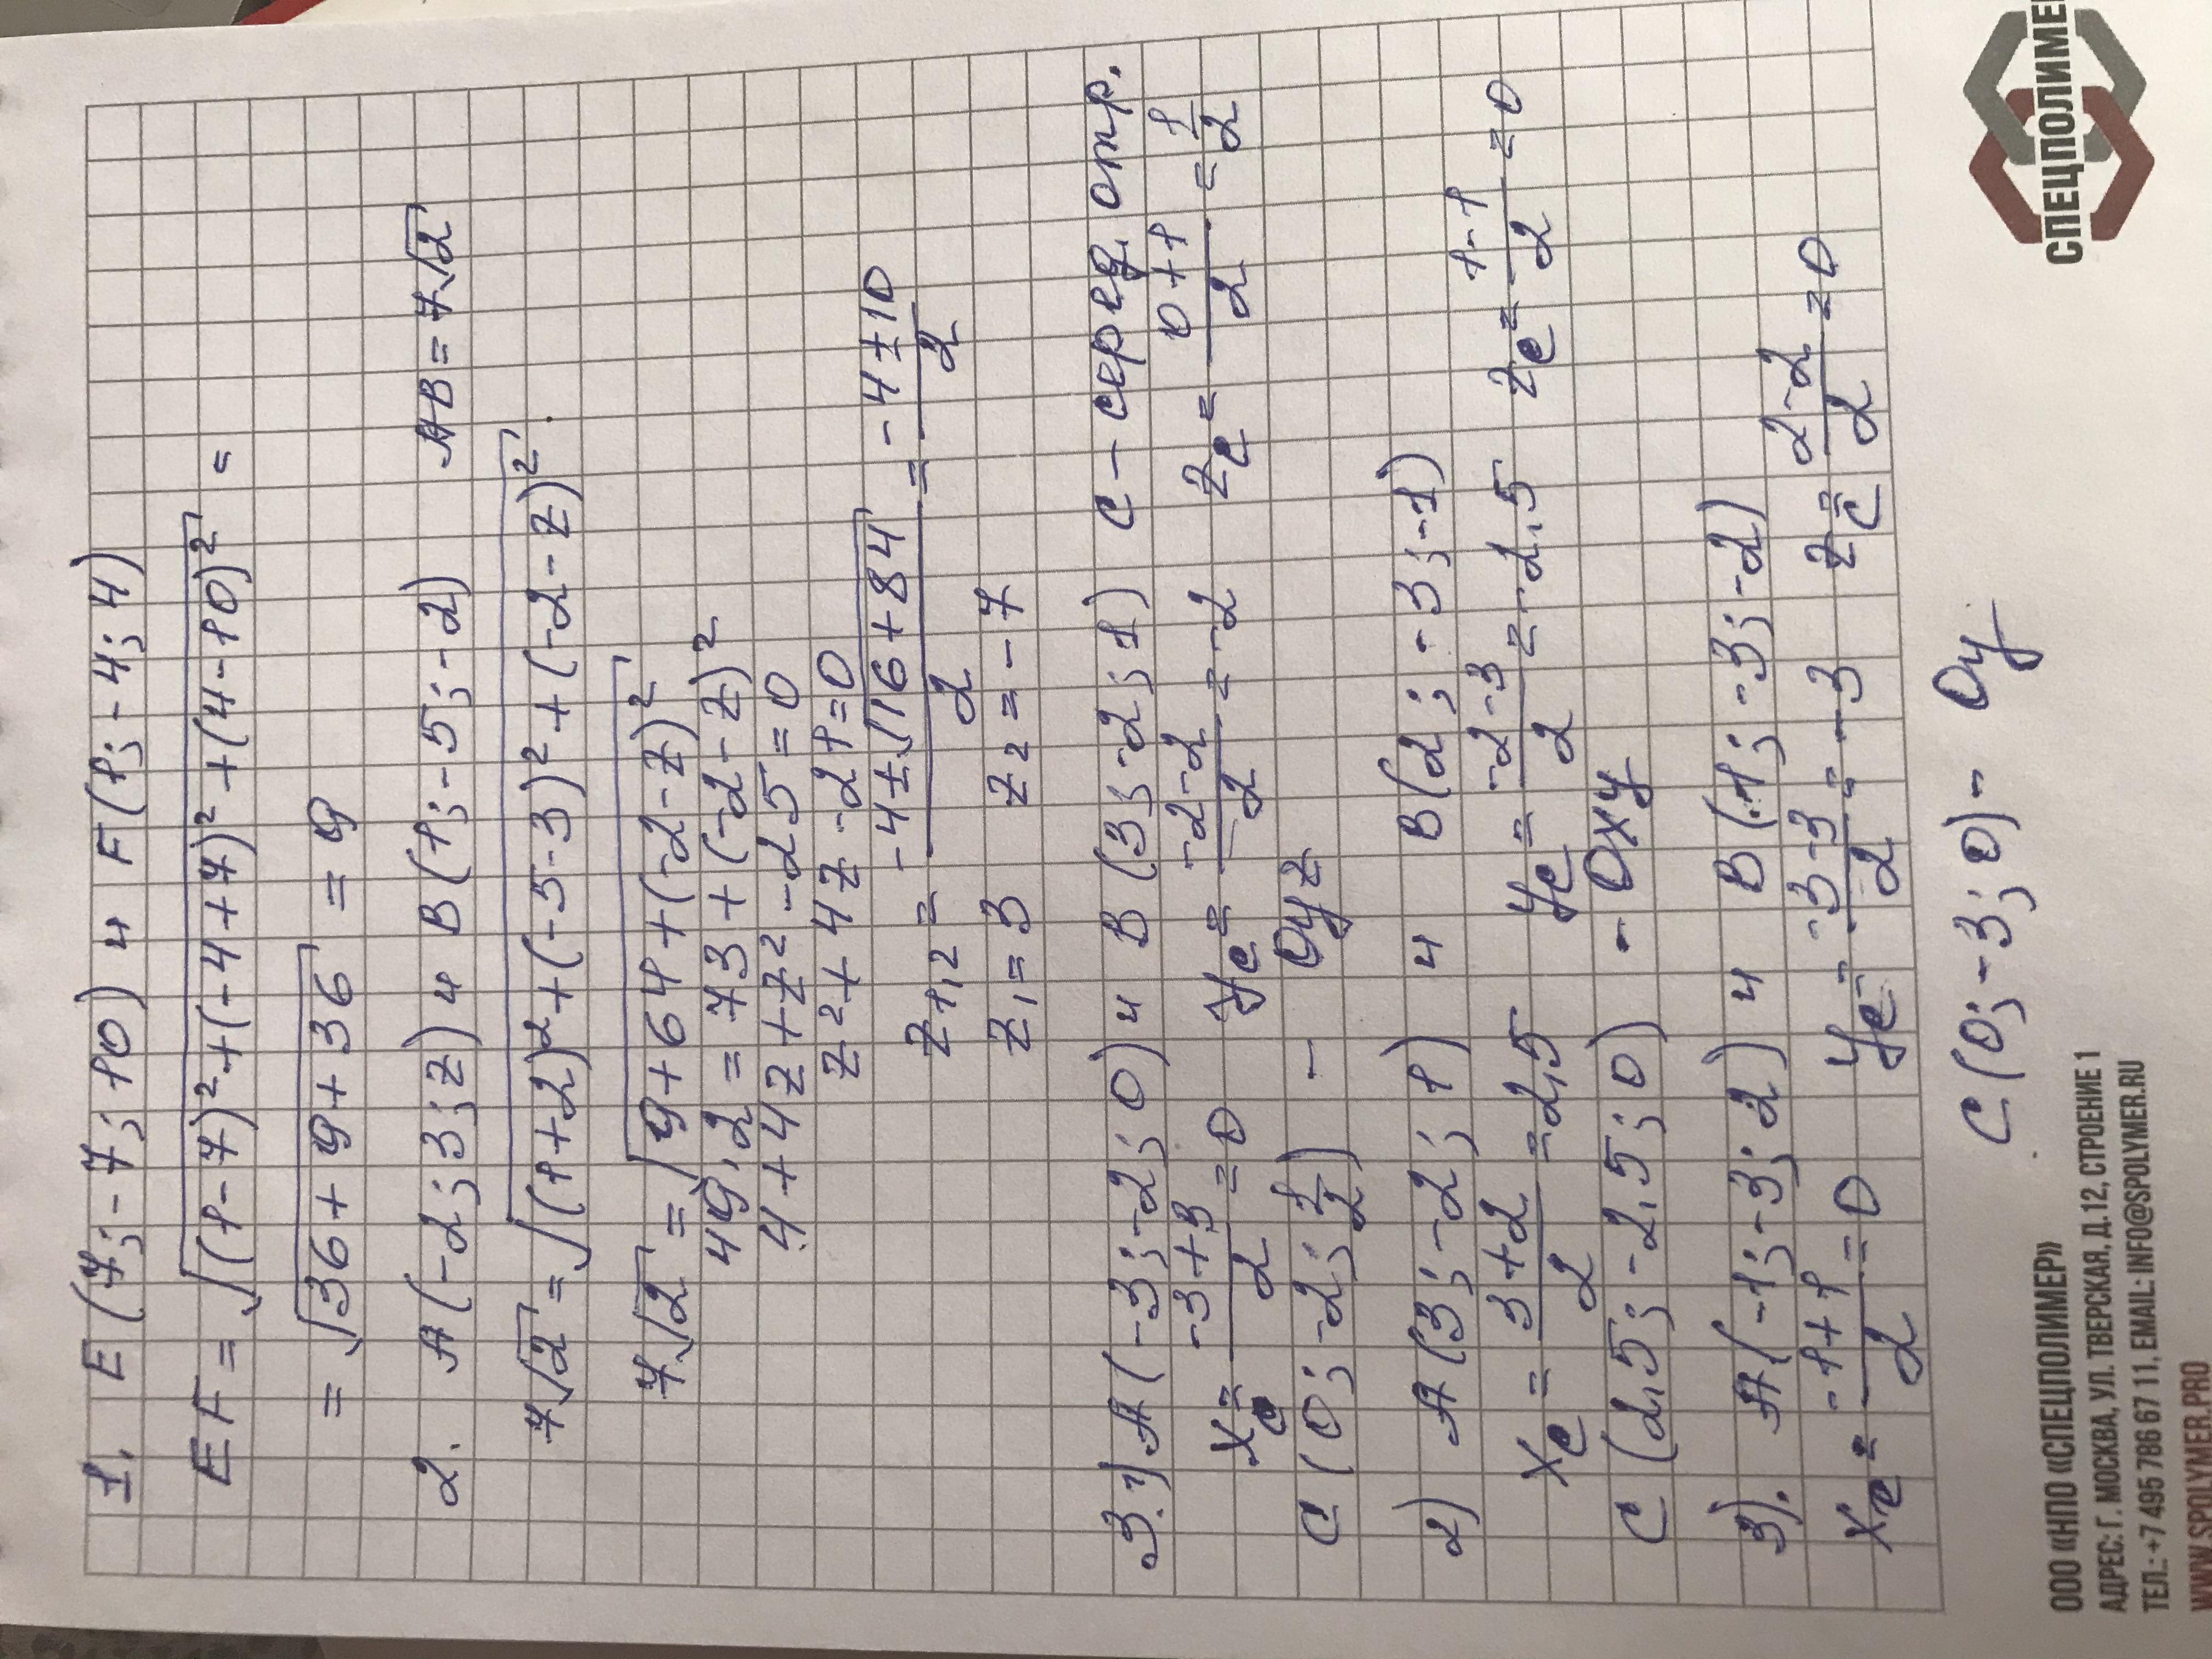 1. E (7; -7; 10) и F (1; -4; 4)
EF = √((1-7)² + (-4+7)² + (4-10)²) =
= √(36 + 9 + 36) = 9
2. A (-2; 3; z) и B (1; -5; -2) AB = 7√2
7√2 = √((1+2)² + (-5-3)² + (-2-z)²).
7√2 = √(9 + 64 + (-2-z)²)
49·2 = 73 + (-2-z)²
4 + 4z + z² - 25 = 0
z² + 4z - 21 = 0
z₁,₂ = (-4 ± √(16+84))/2 = (-4 ± 10)/2
z₁ = 3 z₂ = -7
3. 1) A (-3; -2; 0) и B (3; -2; 1) C - серед. отр.
x_c = (-3+3)/2 = 0 y_c = (-2-2)/2 = -2 z_c = (0+1)/2 = 1/2
C (0; -2; 1/2) - Oyz
2) A (3; -2; 1) и B (2; -3; -1)
x_c = (3+2)/2 = 2,5 y_c = (-2-3)/2 = -2,5 z_c = (1-1)/2 = 0
C (2,5; -2,5; 0) - Oxy
3). A (-1; -3; 2) и B (1; -3; -2)
x_c = (-1+1)/2 = 0 y_c = (-3-3)/2 = -3 z_c = (2-2)/2 = 0
C (0; -3; 0) - Oy
ООО «НПО «СПЕЦПОЛИМЕР»
АДРЕС: Г. МОСКВА, УЛ. ТВЕРСКАЯ, Д. 12, СТРОЕНИЕ 1
ТЕЛ.: +7 495 786 67 11, EMAIL: INFO@SPOLYMER.RU
WWW.SPOLYMER.PRO
СПЕЦПОЛИМЕР